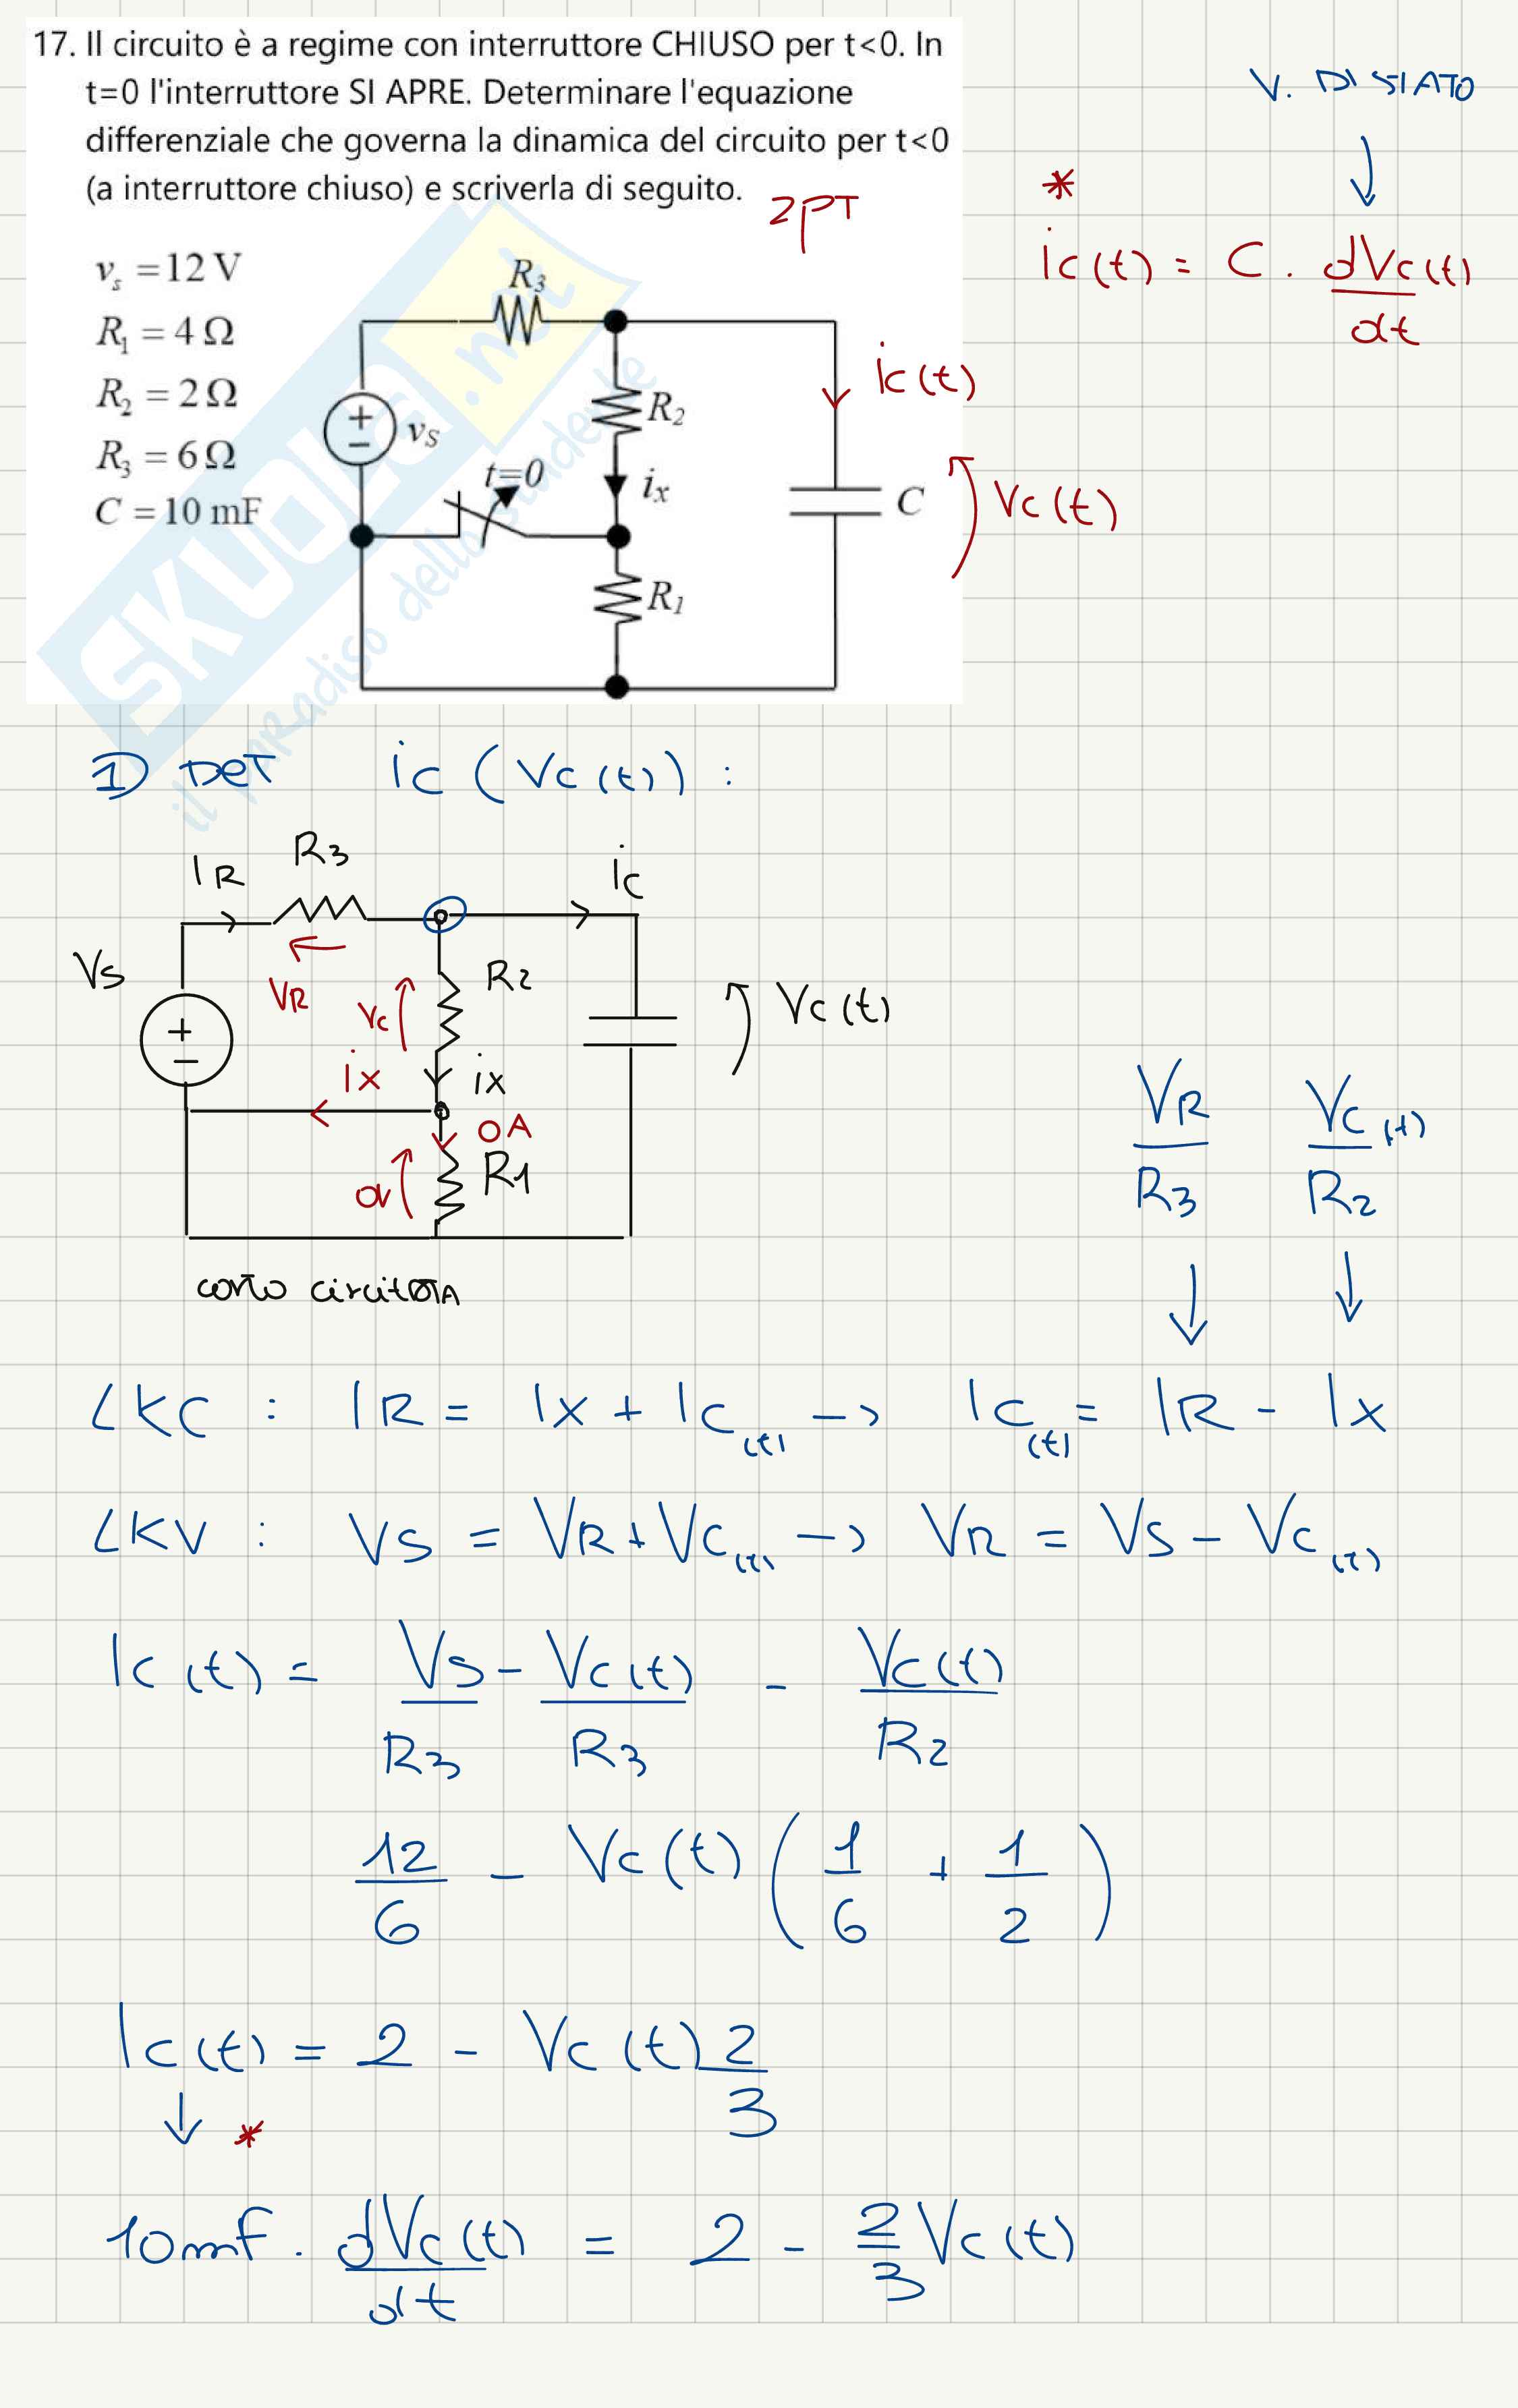 17. Il circuito è a regime con interruttore CHIUSO per t<0. In
t=0 l'interruttore SI APRE. Determinare l'equazione
differenziale che governa la dinamica del circuito per t<0
(a interruttore chiuso) e scriverla di seguito.
2PT
V. DI STATO
*
ic(t) = C . dVc(t)/dt
v_s = 12 V
R_1 = 4 Ω
R_2 = 2 Ω
R_3 = 6 Ω
C = 10 mF
R_3
R_2
ic(t)
+
−
v_S
t=0
i_x
C
Vc(t)
R_1
SKUOLA.net
il paradiso dello studente
1) DET ic (Vc(t)) :
IR R3 ic
Vs VR Vc R2 Vc(t)
+
−
ix ix
0A
0V R1
VR/R3 Vc(t)/R2
LKC : IR = Ix + Ic(t) → Ic(t) = IR - Ix
LKV : VS = VR + Vc(t) → VR = VS - Vc(t)
Ic(t) = VS/R3 - Vc(t)/R3 - Vc(t)/R2
12/6 - Vc(t) (1/6 + 1/2)
Ic(t) = 2 - Vc(t) 2/3
*
10mF . dVc(t)/dt = 2 - 2/3 Vc(t)